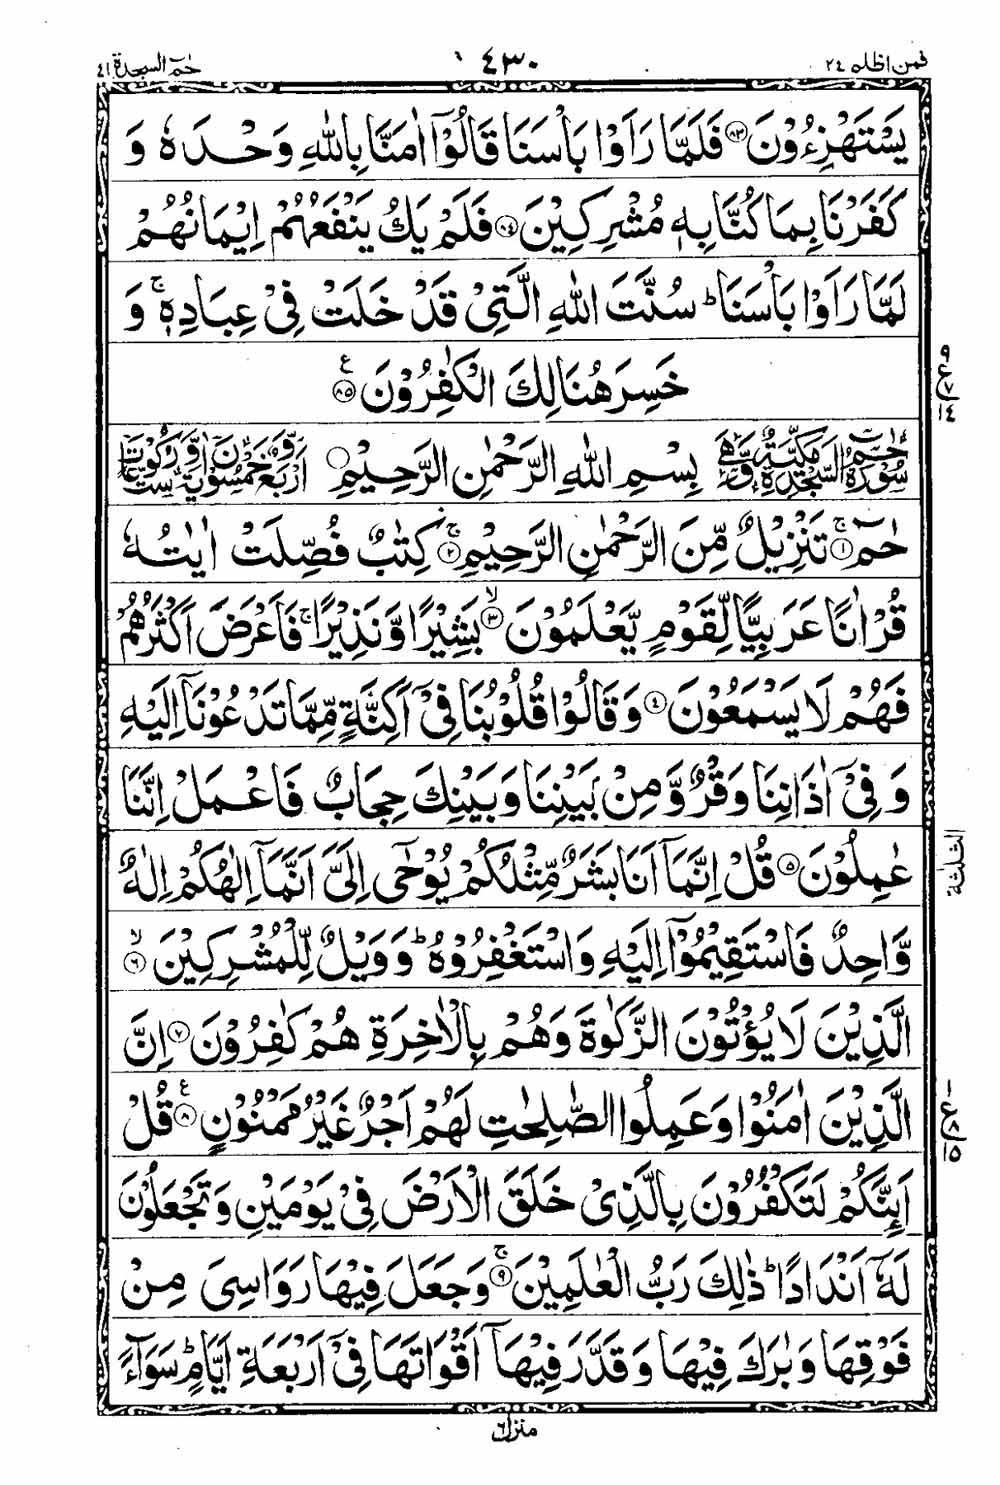 فمن اظلم ٢٤
٤٣٠
حٰمٓ السجدة ٤١
يَسْتَهْزِءُوْنَ ۝٨٣ فَلَمَّا رَاَوْا بَاْسَنَا قَالُوْۤا اٰمَنَّا بِاللّٰهِ وَحْدَهٗ وَ
كَفَرْنَا بِمَا كُنَّا بِهٖ مُشْرِكِيْنَ ۝٨٤ فَلَمْ يَكُ يَنْفَعُهُمْ اِيْمَانُهُمْ
لَمَّا رَاَوْا بَاْسَنَا ؕ سُنَّتَ اللّٰهِ الَّتِيْ قَدْ خَلَتْ فِيْ عِبَادِهٖ ۚ وَ
خَسِرَ هُنَالِكَ الْكٰفِرُوْنَ ۝٨٥ ع
٩
ع ٧
١٤
سُوْرَةُ حٰمٓ السَّجْدَةِ مَكِّيَّةٌ وَّهِيَ بِسْمِ اللّٰهِ الرَّحْمٰنِ الرَّحِيْمِ اَرْبَعٌ وَّخَمْسُوْنَ اٰيَةً وَّسِتُّ رُكُوْعَاتٍ
حٰمٓ ۝١ ۚ تَنْزِيْلٌ مِّنَ الرَّحْمٰنِ الرَّحِيْمِ ۝٢ ۚ كِتٰبٌ فُصِّلَتْ اٰيٰتُهٗ
قُرْاٰنًا عَرَبِيًّا لِّقَوْمٍ يَّعْلَمُوْنَ ۝٣ ۙ بَشِيْرًا وَّنَذِيْرًا ۚ فَاَعْرَضَ اَكْثَرُهُمْ
فَهُمْ لَا يَسْمَعُوْنَ ۝٤ وَقَالُوْا قُلُوْبُنَا فِيْۤ اَكِنَّةٍ مِّمَّا تَدْعُوْنَاۤ اِلَيْهِ
وَفِيْۤ اٰذَانِنَا وَقْرٌ وَّمِنْۢ بَيْنِنَا وَبَيْنِكَ حِجَابٌ فَاعْمَلْ اِنَّنَا
عٰمِلُوْنَ ۝٥ قُلْ اِنَّمَاۤ اَنَا بَشَرٌ مِّثْلُكُمْ يُوْحٰۤى اِلَيَّ اَنَّمَاۤ اِلٰهُكُمْ اِلٰهٌ
الثلثة
وَّاحِدٌ فَاسْتَقِيْمُوْۤا اِلَيْهِ وَاسْتَغْفِرُوْهُ ؕ وَوَيْلٌ لِّلْمُشْرِكِيْنَ ۝٦ ۙ
الَّذِيْنَ لَا يُؤْتُوْنَ الزَّكٰوةَ وَهُمْ بِالْاٰخِرَةِ هُمْ كٰفِرُوْنَ ۝٧ اِنَّ
الَّذِيْنَ اٰمَنُوْا وَعَمِلُوا الصّٰلِحٰتِ لَهُمْ اَجْرٌ غَيْرُ مَمْنُوْنٍ ۝٨ ع قُلْ
١
ع ٨
١٥
اَئِنَّكُمْ لَتَكْفُرُوْنَ بِالَّذِيْ خَلَقَ الْاَرْضَ فِيْ يَوْمَيْنِ وَتَجْعَلُوْنَ
لَهٗۤ اَنْدَادًا ؕ ذٰلِكَ رَبُّ الْعٰلَمِيْنَ ۝٩ ۚ وَجَعَلَ فِيْهَا رَوَاسِيَ مِنْ
فَوْقِهَا وَبٰرَكَ فِيْهَا وَقَدَّرَ فِيْهَاۤ اَقْوَاتَهَا فِيْۤ اَرْبَعَةِ اَيَّامٍ ؕ سَوَآءً
منزل ٦